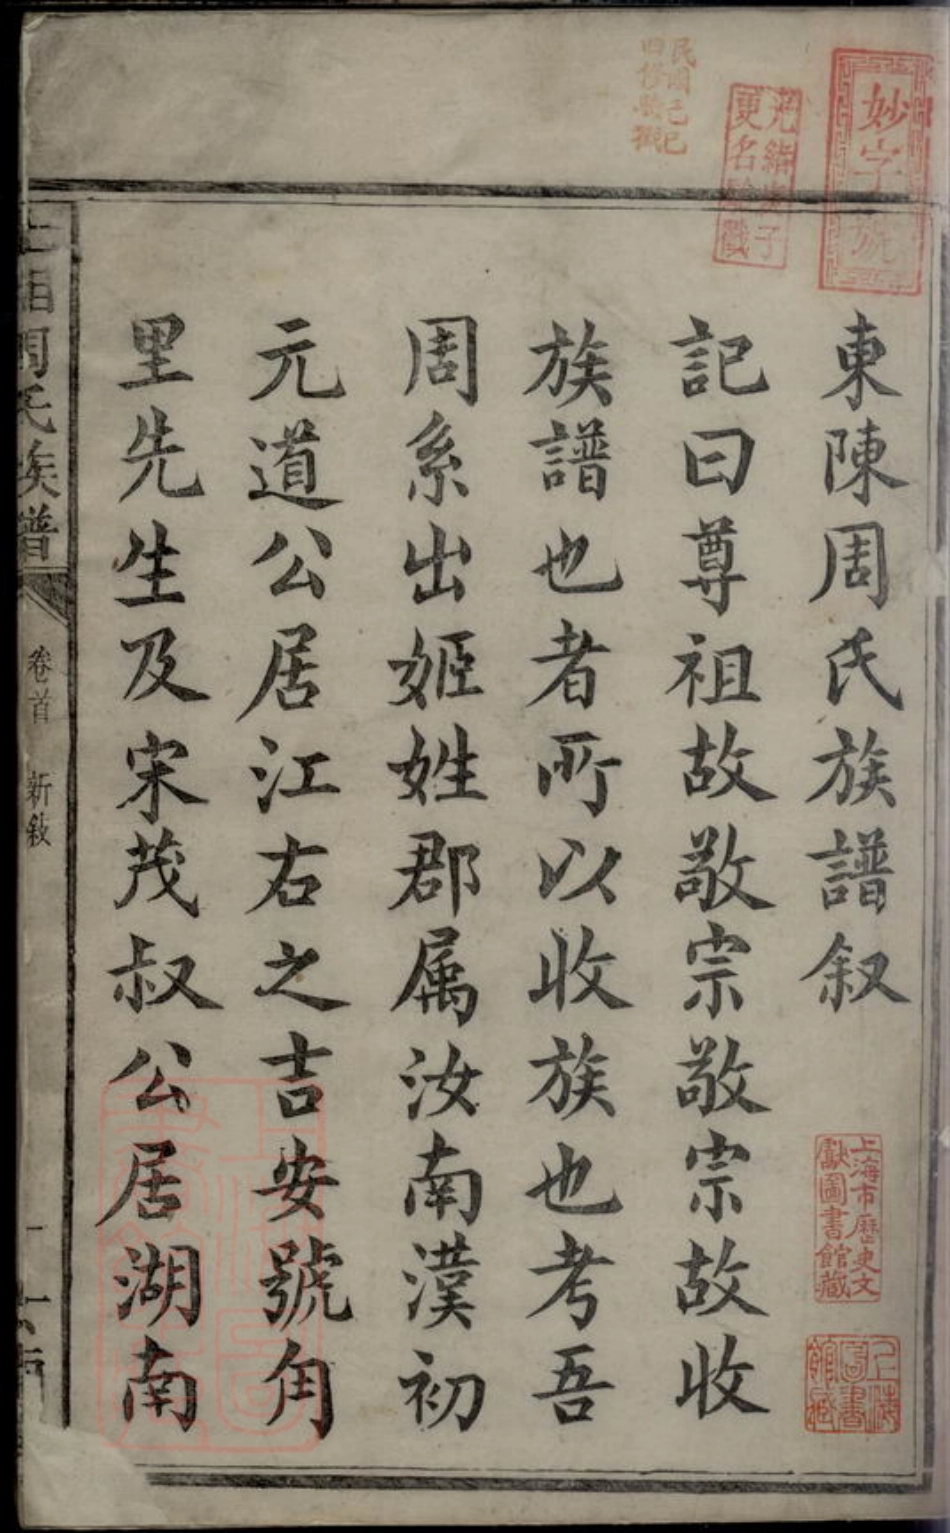 東陳周氏族譜叙
記曰尊祖故敬宗敬宗故收
族譜也者所以收族也考吾
周系出姬姓郡属汝南漢初
元道公居江右之吉安號角
里先生及宋茂叔公居湖南
妙字號
光緒子
更名戳
民國己巳
四修
上海市歷史文
獻圖書館藏
上海
圖書
館藏
上湘周氏族譜
卷首 新敘
一